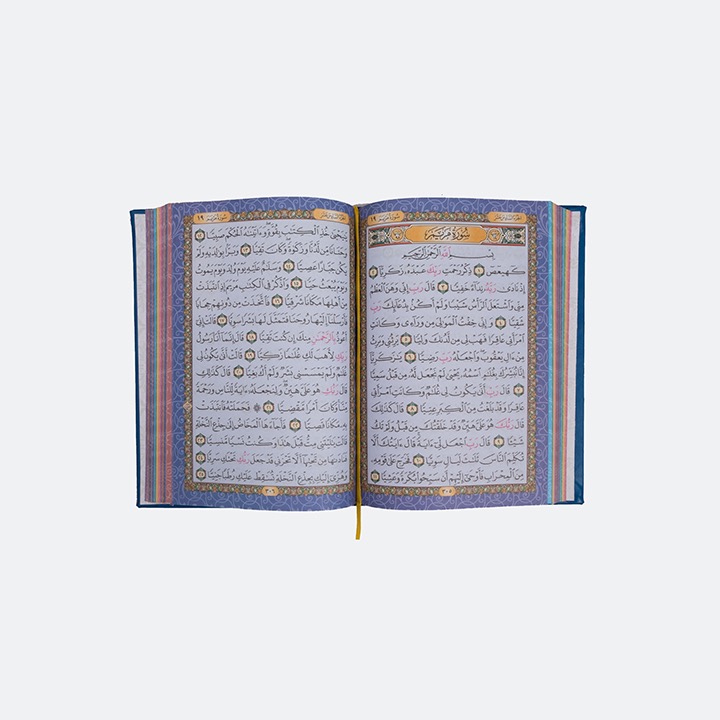 الجزء السادس عشر
سورة مريم ١٩
سُورَةُ مَرْيَمَ
بِسْمِ اللَّهِ الرَّحْمَٰنِ الرَّحِيمِ
كٓهيعٓصٓ ١ ذِكْرُ رَحْمَتِ رَبِّكَ عَبْدَهُۥ زَكَرِيَّآ ٢
إِذْ نَادَىٰ رَبَّهُۥ نِدَآءً خَفِيًّا ٣ قَالَ رَبِّ إِنِّى وَهَنَ ٱلْعَظْمُ
مِنِّى وَٱشْتَعَلَ ٱلرَّأْسُ شَيْبًا وَلَمْ أَكُنۢ بِدُعَآئِكَ رَبِّ
شَقِيًّا ٤ وَإِنِّى خِفْتُ ٱلْمَوَٰلِىَ مِن وَرَآءِى وَكَانَتِ
ٱمْرَأَتِى عَاقِرًا فَهَبْ لِى مِن لَّدُنكَ وَلِيًّا ٥ يَرِثُنِى وَيَرِثُ
مِنْ ءَالِ يَعْقُوبَ وَٱجْعَلْهُ رَبِّ رَضِيًّا ٦ يَٰزَكَرِيَّآ
إِنَّا نُبَشِّرُكَ بِغُلَٰمٍ ٱسْمُهُۥ يَحْيَىٰ لَمْ نَجْعَل لَّهُۥ مِن قَبْلُ سَمِيًّا
٧ قَالَ رَبِّ أَنَّىٰ يَكُونُ لِى غُلَٰمٌ وَكَانَتِ ٱمْرَأَتِى
عَاقِرًا وَقَدْ بَلَغْتُ مِنَ ٱلْكِبَرِ عِتِيًّا ٨ قَالَ كَذَٰلِكَ
قَالَ رَبُّكَ هُوَ عَلَىَّ هَيِّنٌ وَقَدْ خَلَقْتُكَ مِن قَبْلُ وَلَمْ تَكُ
شَيْـًٔا ٩ قَالَ رَبِّ ٱجْعَل لِّىٓ ءَايَةً قَالَ ءَايَتُكَ أَلَّا
تُكَلِّمَ ٱلنَّاسَ ثَلَٰثَ لَيَالٍ سَوِيًّا ١٠ فَخَرَجَ عَلَىٰ قَوْمِهِۦ
مِنَ ٱلْمِحْرَابِ فَأَوْحَىٰٓ إِلَيْهِمْ أَن سَبِّحُوا۟ بُكْرَةً وَعَشِيًّا ١١
٣٠٥
الجزء السادس عشر
سورة مريم ١٩
يَٰيَحْيَىٰ خُذِ ٱلْكِتَٰبَ بِقُوَّةٍ وَءَاتَيْنَٰهُ ٱلْحُكْمَ صَبِيًّا ١٢
وَحَنَانًا مِّن لَّدُنَّا وَزَكَوٰةً وَكَانَ تَقِيًّا ١٣ وَبَرًّۢا بِوَٰلِدَيْهِ وَلَمْ
يَكُن جَبَّارًا عَصِيًّا ١٤ وَسَلَٰمٌ عَلَيْهِ يَوْمَ وُلِدَ وَيَوْمَ يَمُوتُ
وَيَوْمَ يُبْعَثُ حَيًّا ١٥ وَٱذْكُرْ فِى ٱلْكِتَٰبِ مَرْيَمَ إِذِ ٱنتَبَذَتْ
مِنْ أَهْلِهَا مَكَانًا شَرْقِيًّا ١٦ فَٱتَّخَذَتْ مِن دُونِهِمْ حِجَابًا
فَأَرْسَلْنَآ إِلَيْهَا رُوحَنَا فَتَمَثَّلَ لَهَا بَشَرًا سَوِيًّا ١٧ قَالَتْ إِنِّىٓ
أَعُوذُ بِٱلرَّحْمَٰنِ مِنكَ إِن كُنتَ تَقِيًّا ١٨ قَالَ إِنَّمَآ أَنَا۠ رَسُولُ
رَبِّكِ لِأَهَبَ لَكِ غُلَٰمًا زَكِيًّا ١٩ قَالَتْ أَنَّىٰ يَكُونُ لِى
غُلَٰمٌ وَلَمْ يَمْسَسْنِى بَشَرٌ وَلَمْ أَكُ بَغِيًّا ٢٠ قَالَ كَذَٰلِكِ
قَالَ رَبُّكِ هُوَ عَلَىَّ هَيِّنٌ وَلِنَجْعَلَهُۥٓ ءَايَةً لِّلنَّاسِ وَرَحْمَةً
مِّنَّا وَكَانَ أَمْرًا مَّقْضِيًّا ٢١ فَحَمَلَتْهُ فَٱنتَبَذَتْ
بِهِۦ مَكَانًا قَصِيًّا ٢٢ فَأَجَآءَهَا ٱلْمَخَاضُ إِلَىٰ جِذْعِ ٱلنَّخْلَةِ
قَالَتْ يَٰلَيْتَنِى مِتُّ قَبْلَ هَٰذَا وَكُنتُ نَسْيًا مَّنسِيًّا ٢٣
فَنَادَىٰهَا مِن تَحْتِهَآ أَلَّا تَحْزَنِى قَدْ جَعَلَ رَبُّكِ تَحْتَكِ سَرِيًّا ٢٤
وَهُزِّىٓ إِلَيْكِ بِجِذْعِ ٱلنَّخْلَةِ تُسَٰقِطْ عَلَيْكِ رُطَبًا جَنِيًّا ٢٥
٣٠٦